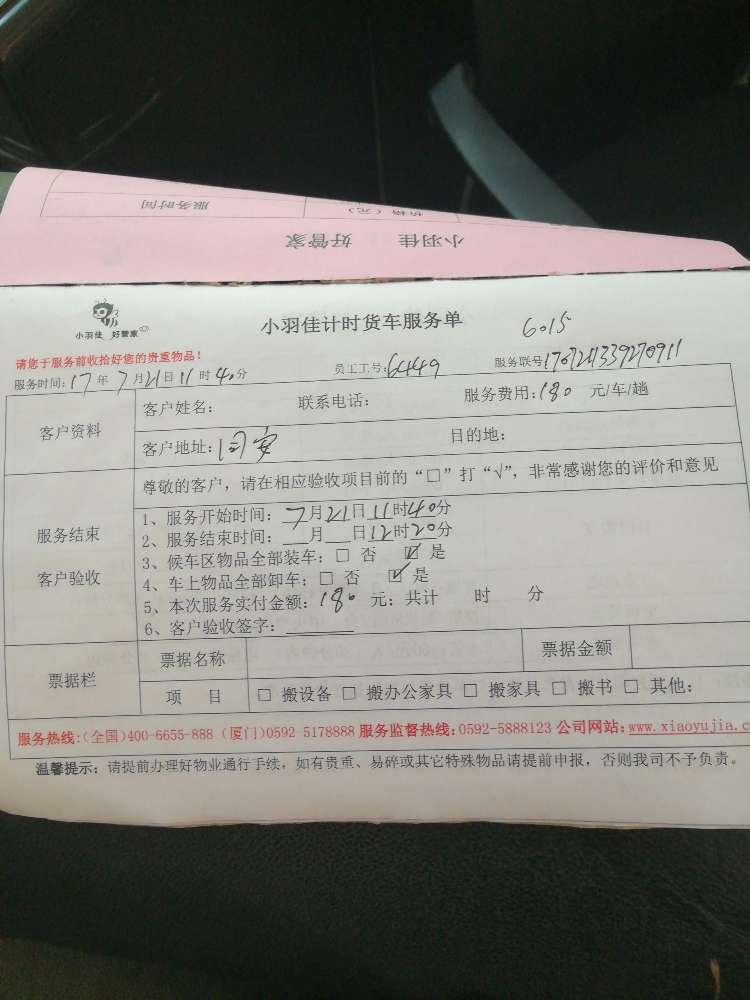 服务时间
价格（元）
小羽佳 好管家
小羽佳 好管家
小羽佳计时货车服务单
6015
请您于服务前收拾好您的贵重物品！
服务时间：17年7月21日11时40分 员工工号：6449 服务联号
客户资料
客户姓名： 联系电话： 服务费用：180 元/车/趟
客户地址：同安 目的地：
服务结束
客户验收
尊敬的客户，请在相应验收项目前的“□”打“√”，非常感谢您的评价和意见
1、服务开始时间：7月21日11时40分
2、服务结束时间：___月___日12时20分
3、候车区物品全部装车：□ 否 ☑ 是
4、车上物品全部卸车：□ 否 ☑ 是
5、本次服务实付金额：180 元；共计 时 分
6、客户验收签字：
票据栏
票据名称 票据金额
项 目 □ 搬设备 □ 搬办公家具 □ 搬家具 □ 搬书 □ 其他：
服务热线：(全国)400-6655-888 (厦门)0592-5178888 服务监督热线：0592-5888123 公司网站：www.xiaoyujia.c
温馨提示：请提前办理好物业通行手续，如有贵重、易碎或其它特殊物品请提前申报，否则我司不予负责。